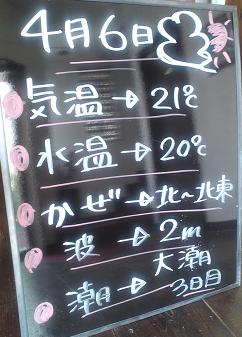 4月6日
気温→21℃
水温→20℃
かぜ→北～北東
波→2m
潮→大潮
3日目